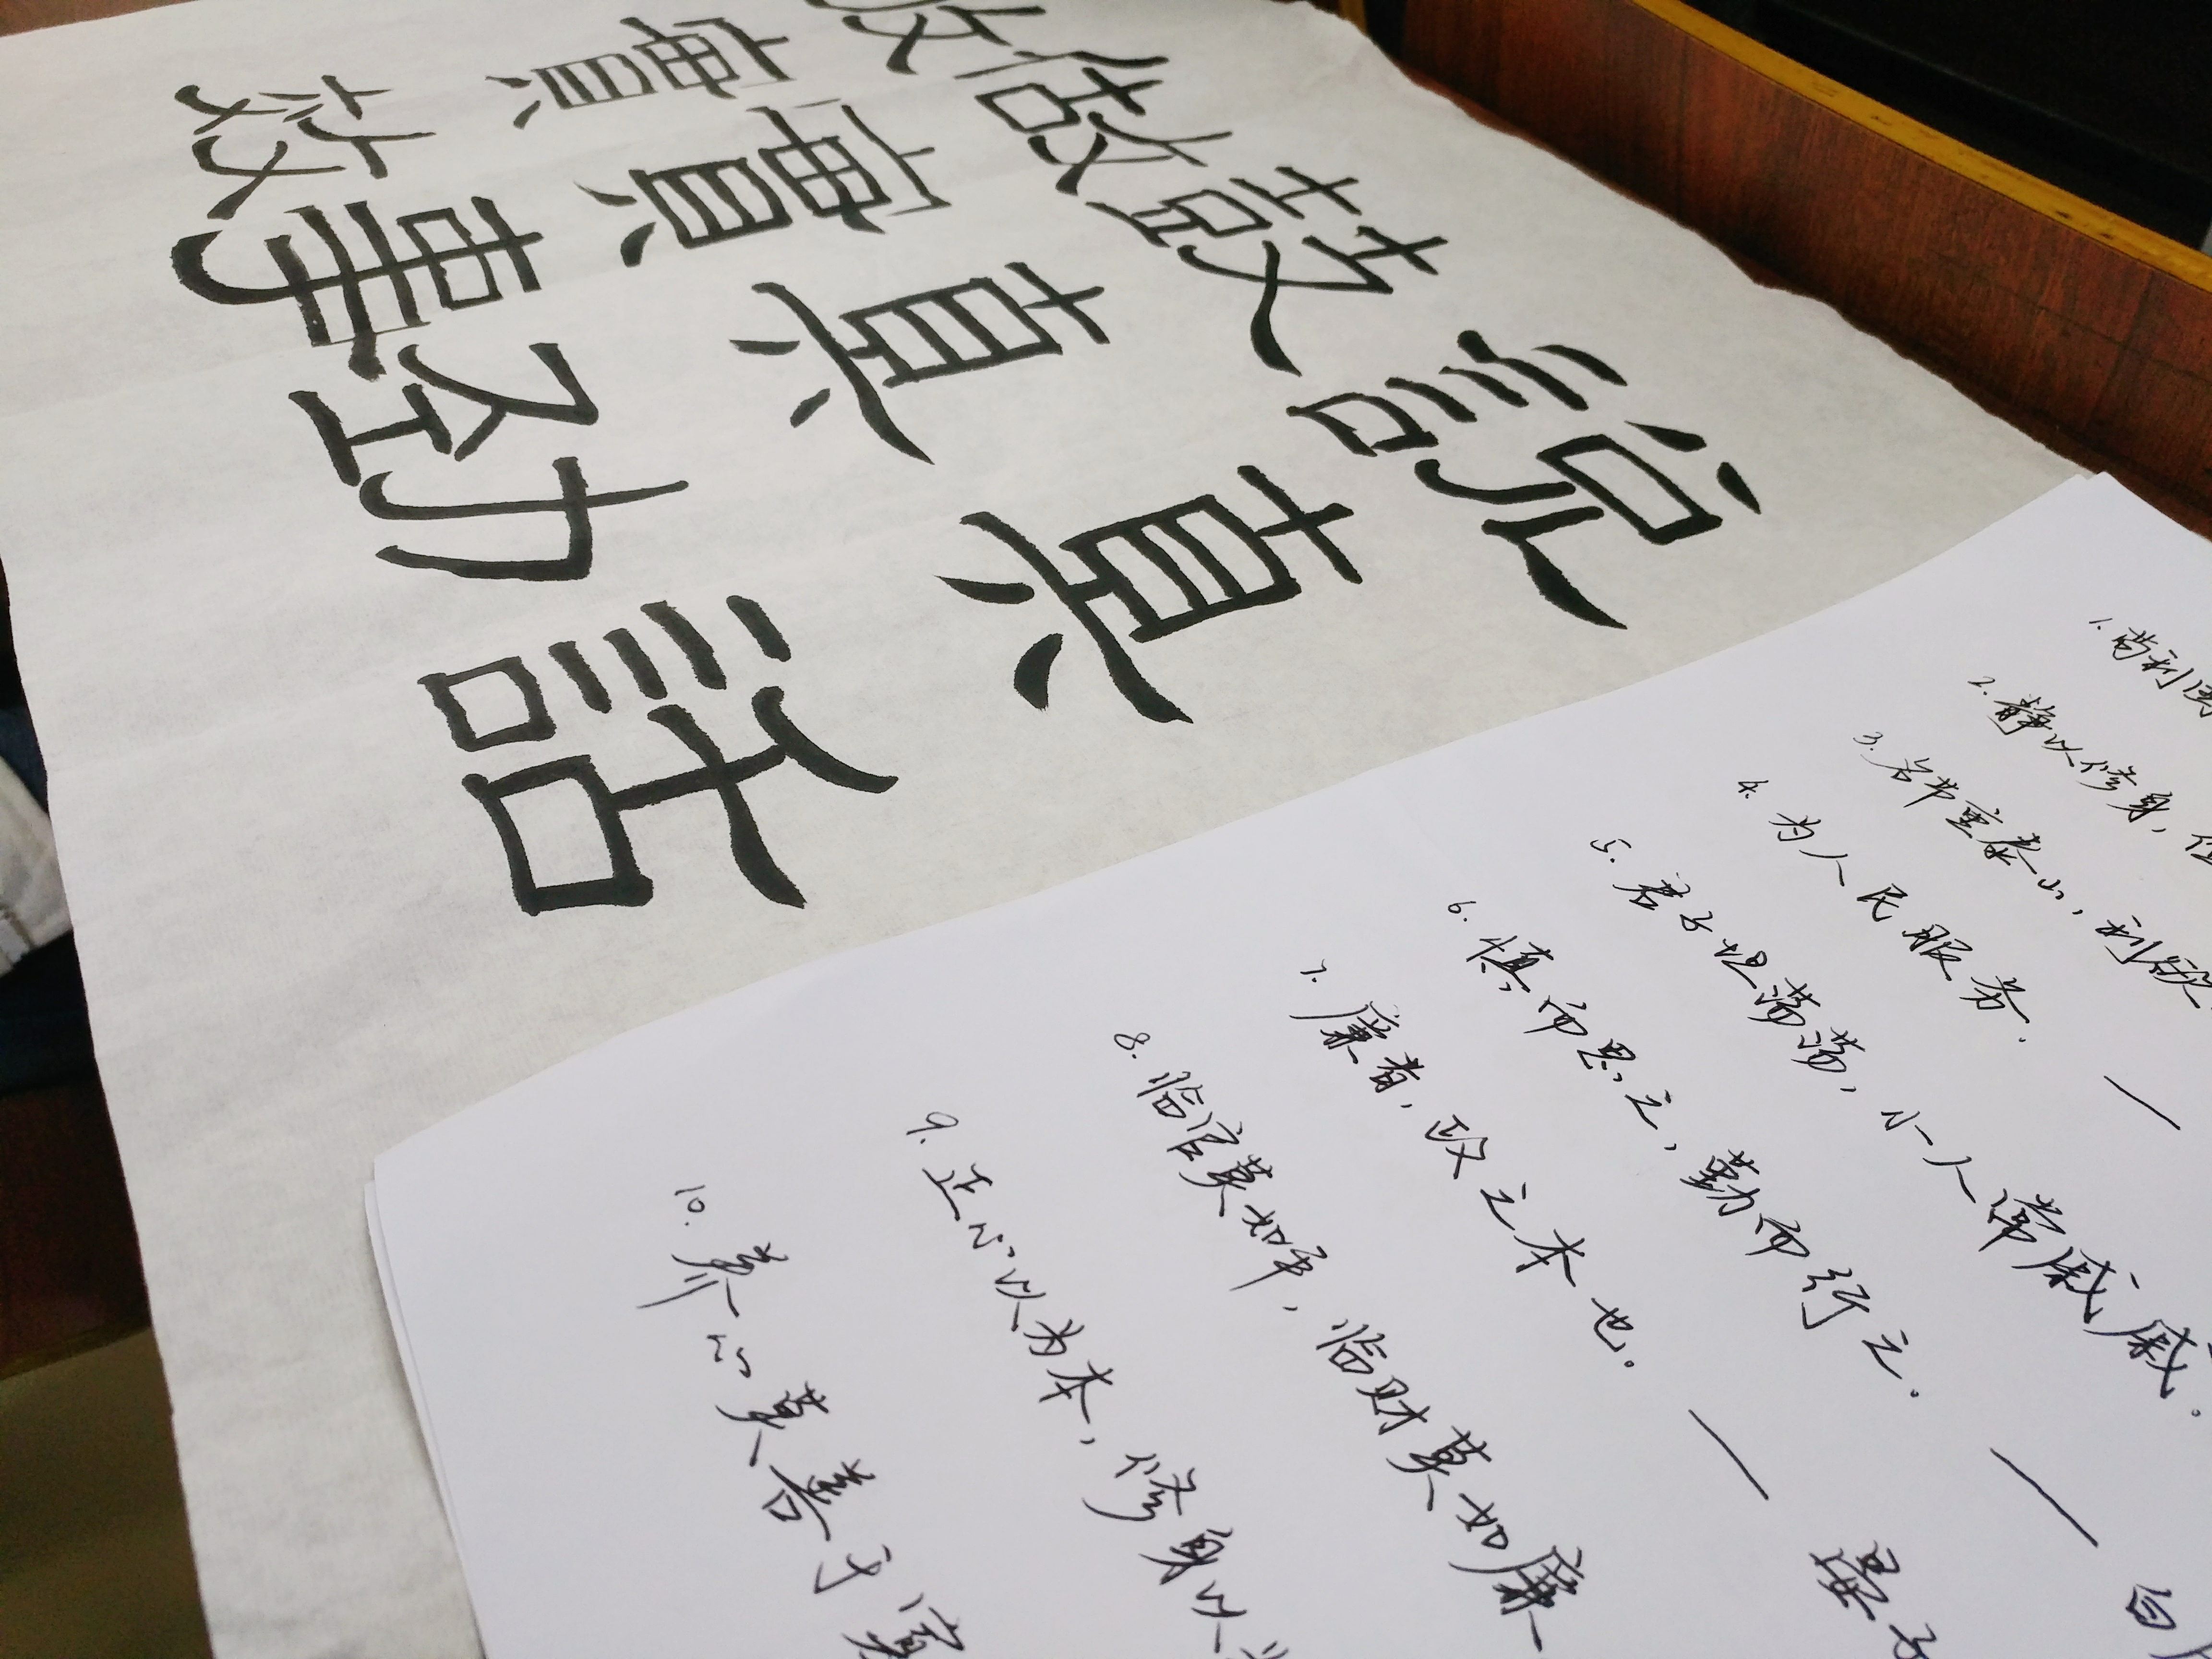 說真話
鼓真勁
做實事
收實效
1. 苟利国
2. 静以修身,
3. 名节重泰山, 利欲
4. 为人民服务. —
5. 君子坦荡荡, 小人常戚戚.
6. 慎而思之, 勤而行之. — 白
7. 廉者, 政之本也. — 晏子
8. 临官莫如平, 临财莫如廉
9. 正心以为本, 修身以为
10. 养心莫善于寡